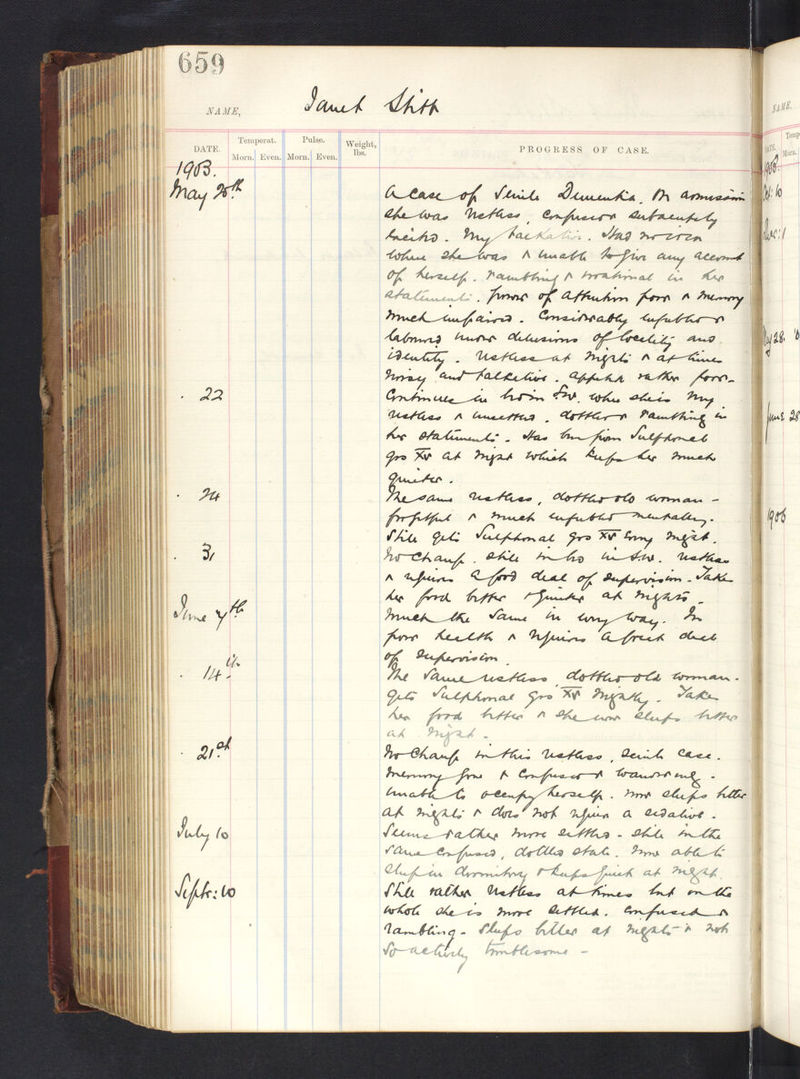 659
NAME, Janet Stitt
DATE. Temperat. Pulse. Weight, lbs. PROGRESS OF CASE.
Morn. Even. Morn. Even.
1903.
May 20th A case of Senile Dementia. On admission
she was restless, confused & subacutely
excited. Very talkative. Had no idea
where she was & unable to give any account
of herself. rambling & irrational in her
statements. power of attention poor & memory
much impaired. Considerably enfeebled &
laboured under delusions of locality and
identity. restless at nights & at times
noisy and talkative. appetite rather poor.
. 22 Continues in bed in S.W. where she is very
restless & unsettled. dottled & rambling in
her statements. Has been given Sulphonal
grs XV at night which keeps her much
quieter.
. 24 The same restless, dottled old woman -
forgetful & much enfeebled mentally.
Still gets Sulphonal grs XV every night.
. 31 No change. still in bed in S.W. restless
& requires a good deal of supervision. Takes
her food better & quieter at nights.
June 7th Much the same in every way. In
poor health & requires a great deal
of supervision.
. 14th The same restless, dottled old woman.
gets Sulphonal grs XV nightly. Takes
her food better & she now sleeps better
at night.
. 21st No change in this restless, senile case.
Memory gone & confused & wandering.
unable to occupy herself. now sleeps better
at nights & does not require a sedative.
July 10 Seems rather more settled - still in the
same confused, dottled state. Now able to
sleep in dormitory & keeps quiet at night.
Septr: 10 Still rather restless at times but on the
whole she is more settled. confused &
rambling. Sleeps better at nights & not
so actively troublesome -
NAME.
DATE. Temp
Morn.
: 10
: 1
May 28
June 28
1906